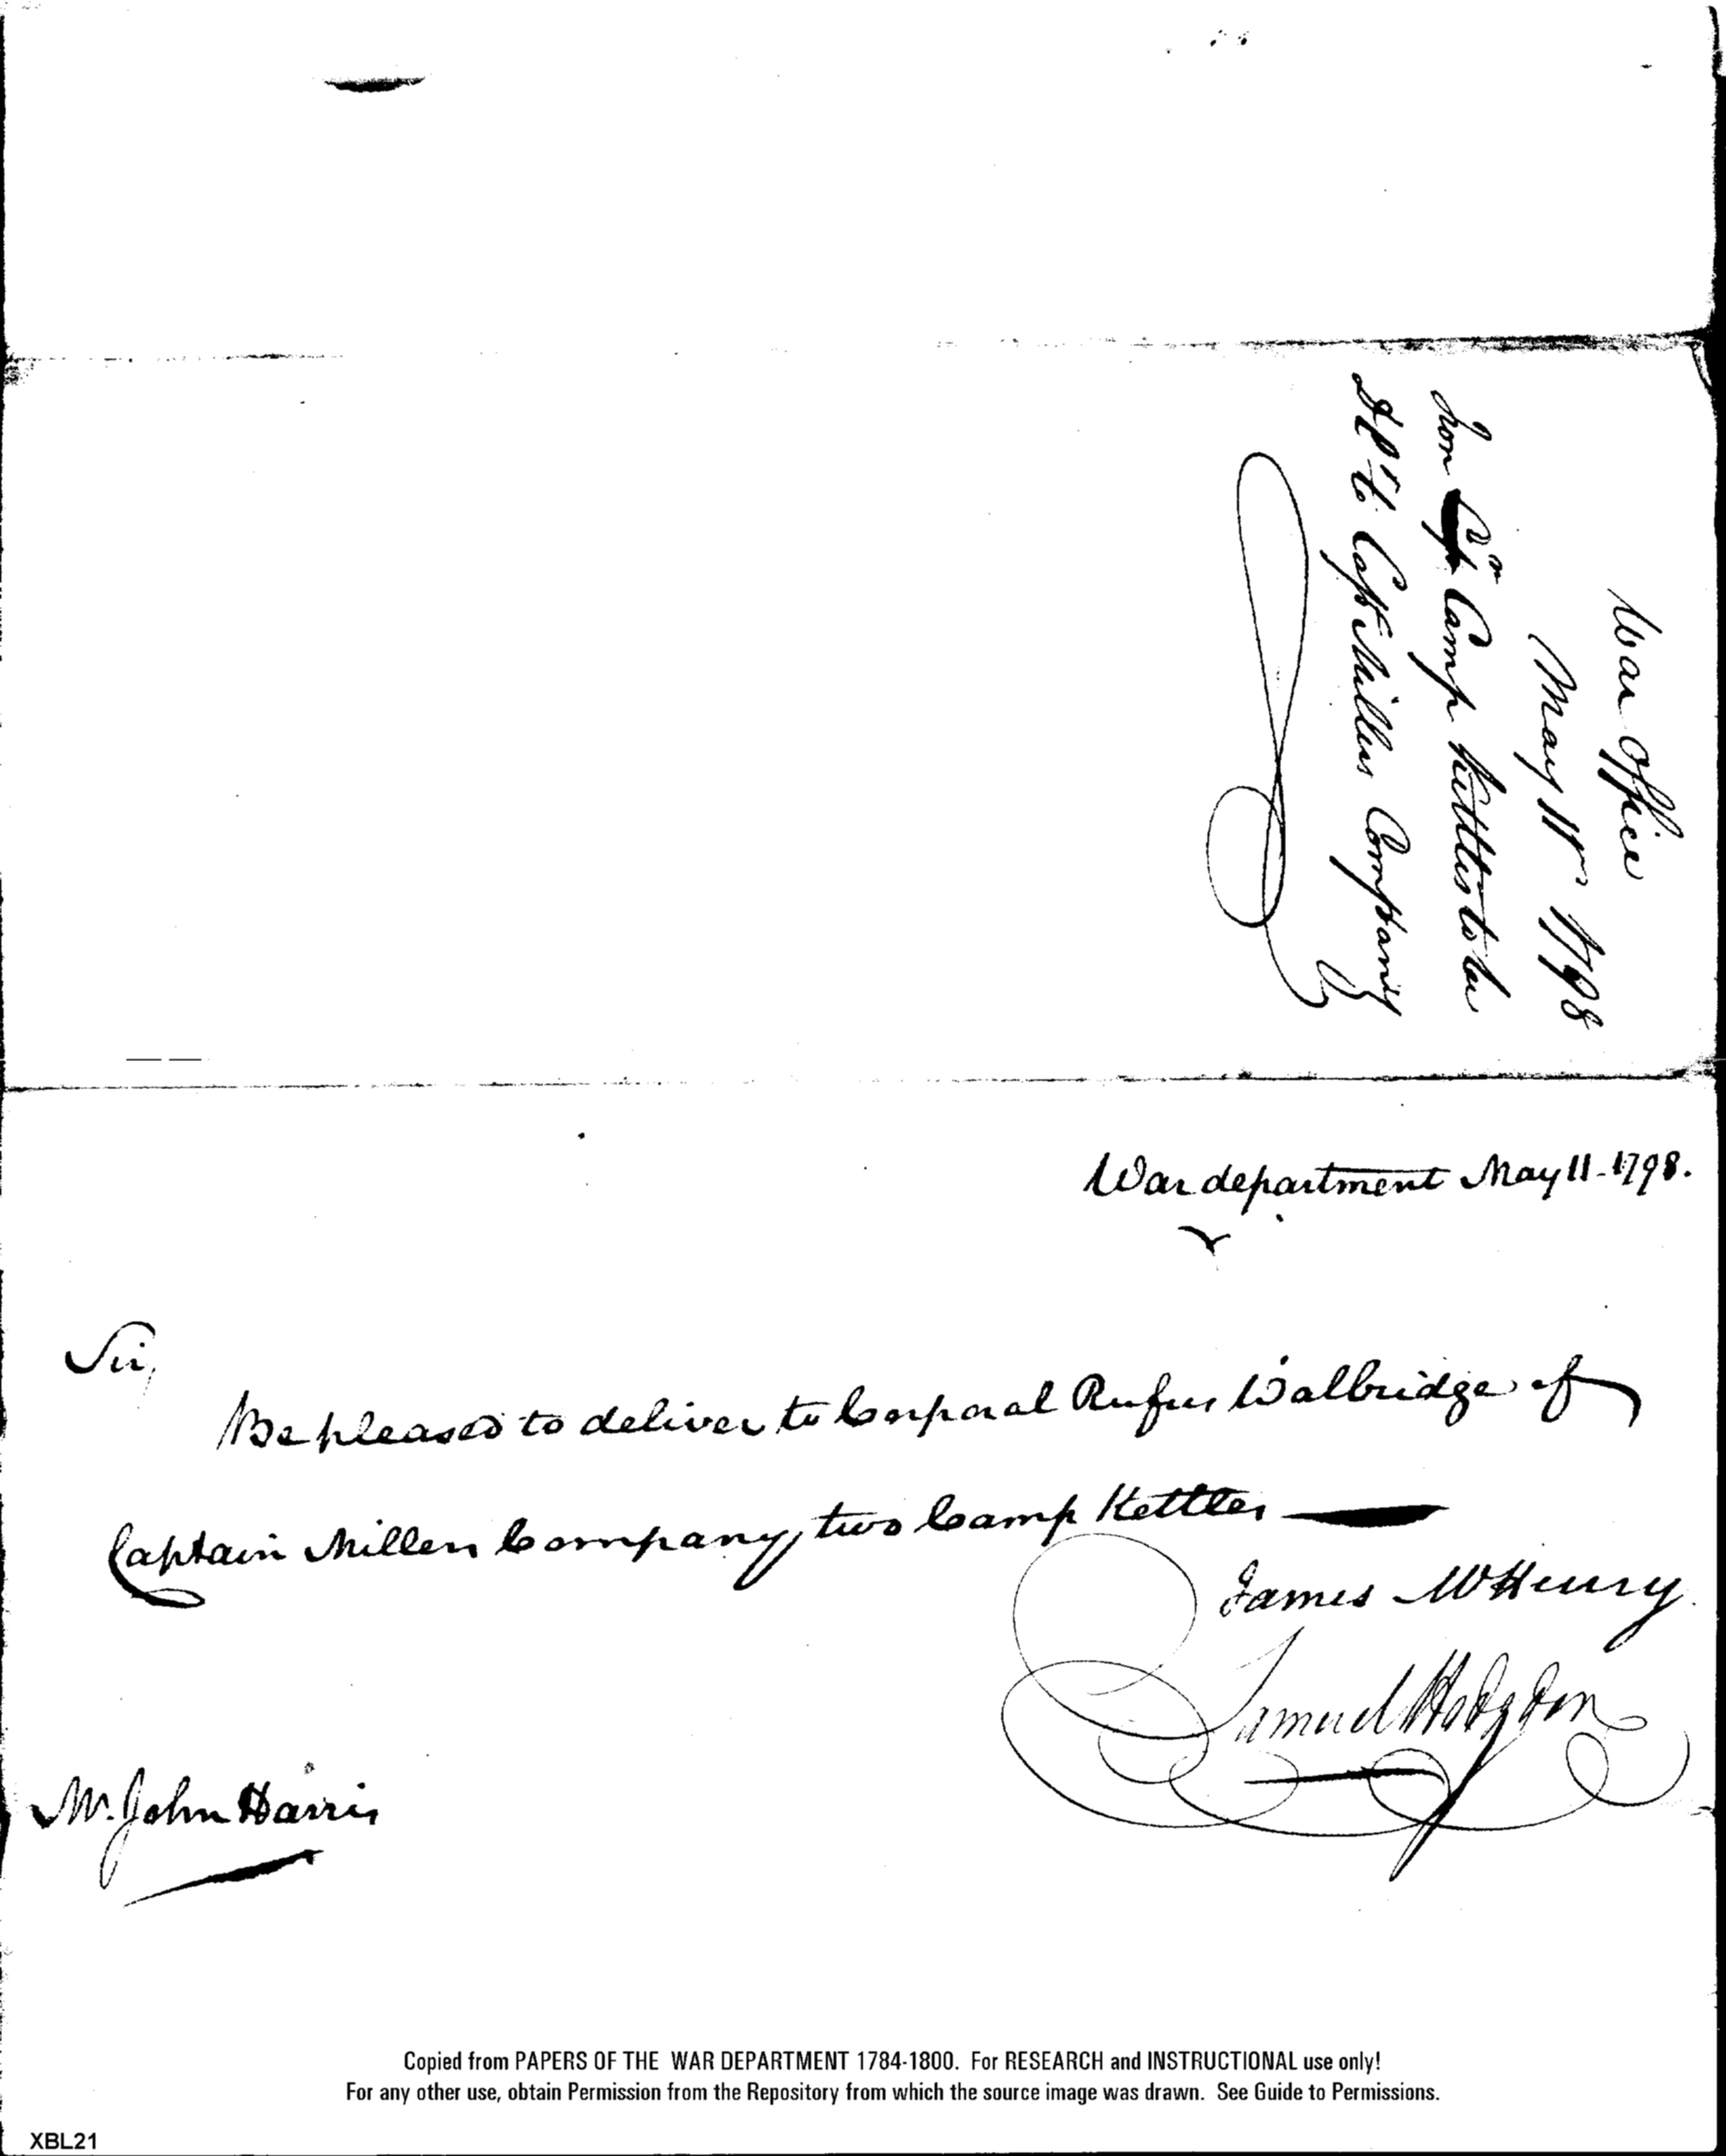 War Office
May 11th 1798
Camp Kettles to be
Capt Millers Company
War department May 11-1798.
Sir,
Be pleased to deliver to Corporal Rufus Walbridge of
Captain Millers Company, two Camp Kettles
James McHenry
Samuel Hodgdon
Mr. John Harris
Copied from PAPERS OF THE WAR DEPARTMENT 1784-1800. For RESEARCH and INSTRUCTIONAL use only!
For any other use, obtain Permission from the Repository from which the source image was drawn. See Guide to Permissions.
XBL21